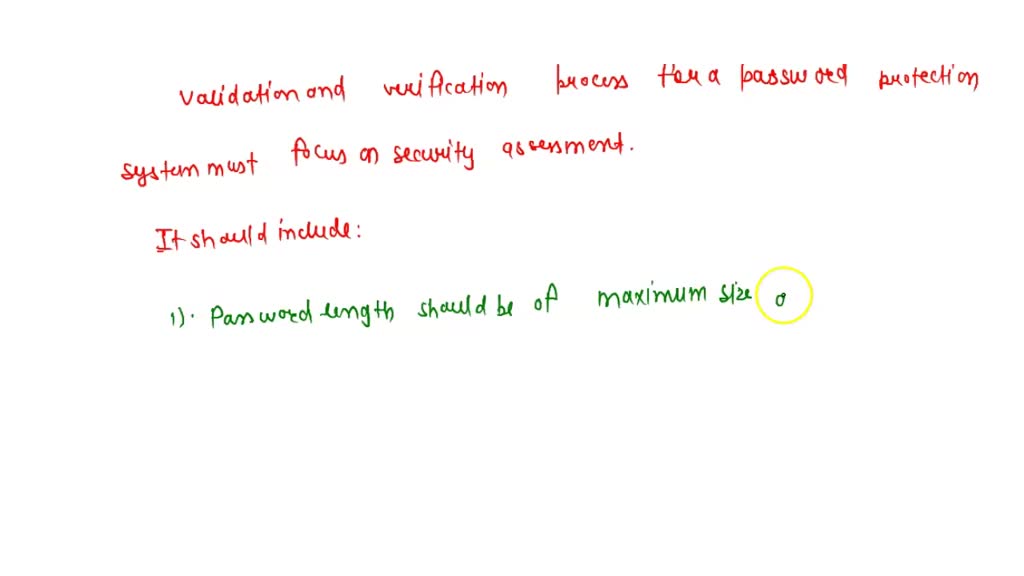 validation and verification process for a password protection
system must focus on security assessment.
It should include:
1). Password length should be of maximum size o